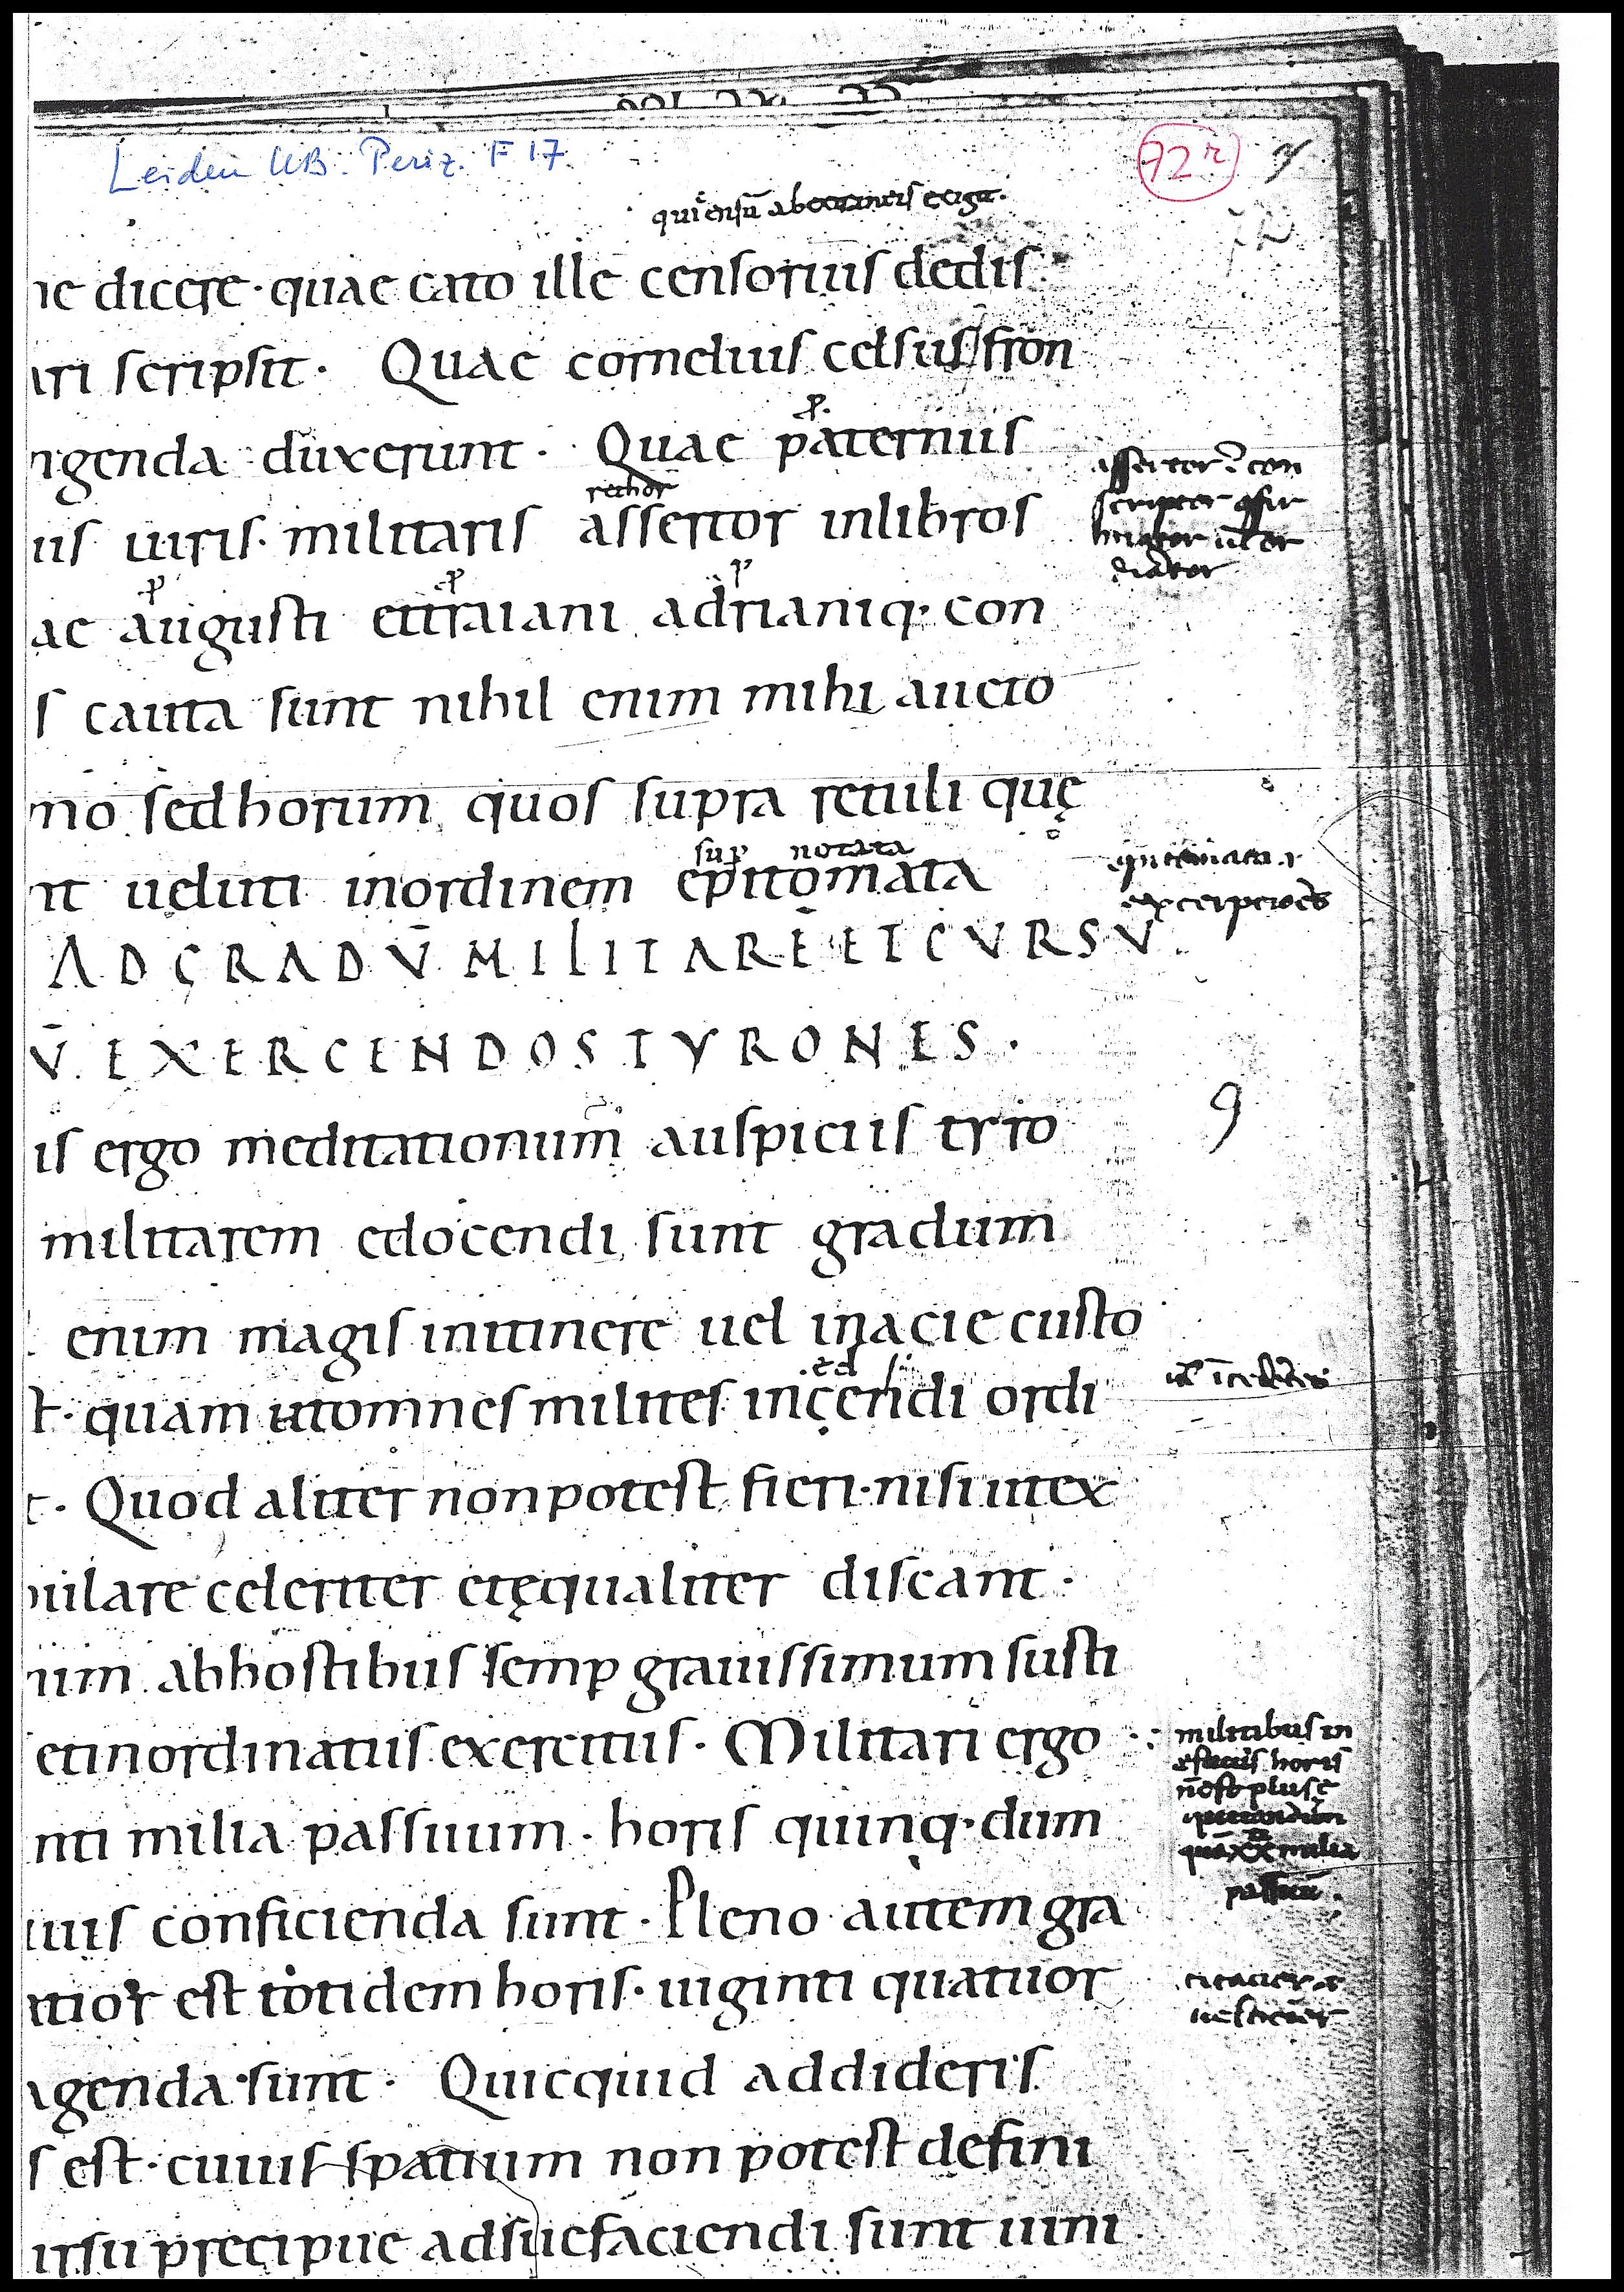 Leiden UB. Periz. F 17
72r
dicere · quae cato ille censorius dedis
scripsit · Quae cornelius celsus fron
genda duxerunt · Quae paternus
p.
rethor
us iuris · militaris assertor inlibros
assertor con
scriptor
ac augusti ettraiani adrianiq· con
s cauta sunt nihil enim mihi aucto
mo sed horum quos supra retuli quę
sup notata
nt ueluti inordinem epitomata
ADGRADŪ MILITARĒ ET CVRSV
V̄ EXERCENDOS TYRONES ·
9
is ergo meditationum auspiciis tyro
militarem edocendi sunt gradum
enim magis initinere uel inacie custo
t · quam utomnes milites incendi ordi
t · Quod aliter nonpotest fieri · nisi utex
ulare celeriter etęqualiter discant ·
um abhostibus semp grauissimum susti
etinordinatus exercitus · Militari ergo
militibus in
horis
nti milia passuum · horis quinq· dum
milia
uis conficienda sunt · Pleno autem gra
itior est totidem horis · uiginti quatuor
genda · sunt · Quicquid addideris
s est · cuius spatium non potest defini
ursu precipue adsuefaciendi sunt